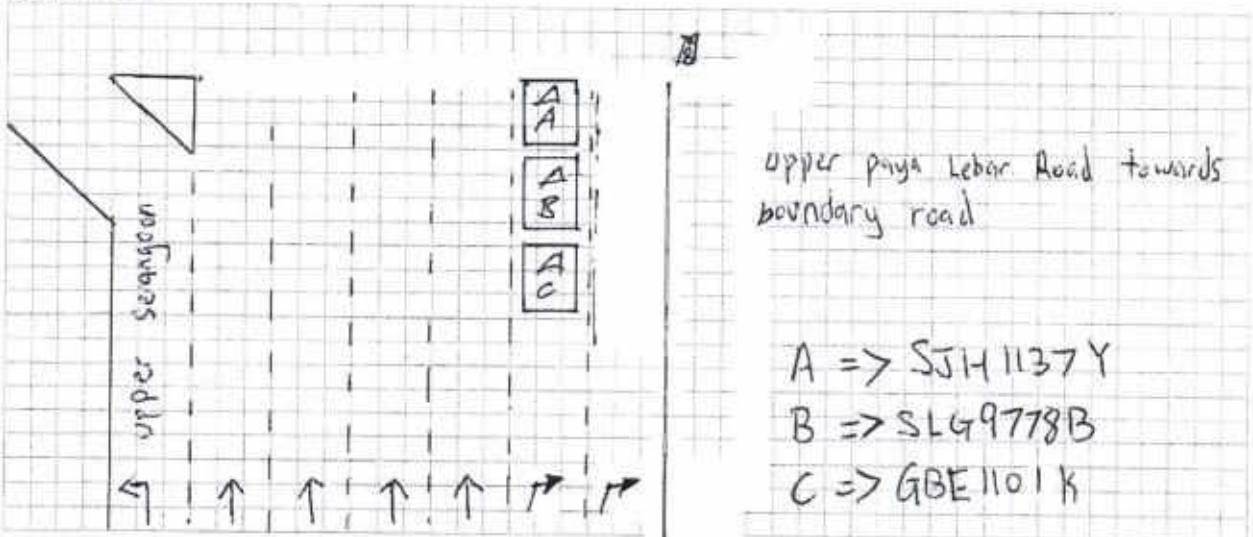 A
B
C
upper Serangoon
upper paya Lebar Road towards
boundary road
A => SJH1137Y
B => SLG9778B
C => GBE1101K